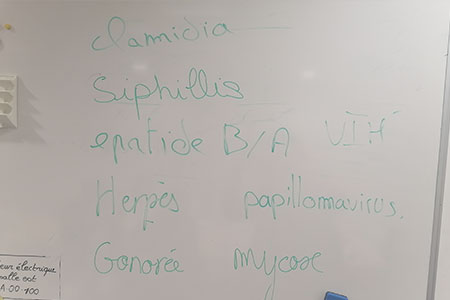 clamidia
Siphillis
epatide B/A VIH
Herpès papillomavirus.
Gonorée mycose
eur électrique
malle ext
A-00-100